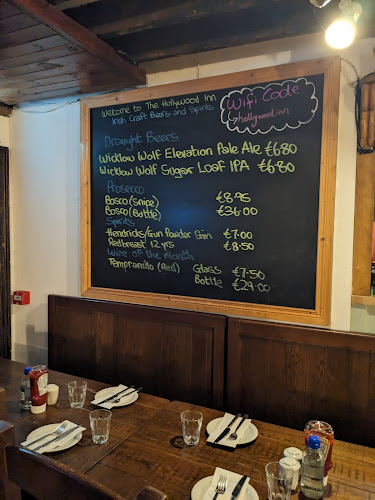 Welcome to The Hollywood Inn
Irish Craft Beers and Spirits
Wifi Code
hollywoodinn
Draught Beers
Wicklow Wolf Elevation Pale Ale €6.80
Wicklow Wolf Sugar Loaf IPA €6.80
Prosecco
Bosco (Snipe) €8.95
Bosco (Bottle) €36.00
Spirits
Hendricks/Gun Powder Gin €7.00
Redbreast 12 yrs €8.50
Wine of the Month
Tempranillo (Red) Glass €7.50
Bottle €29.00